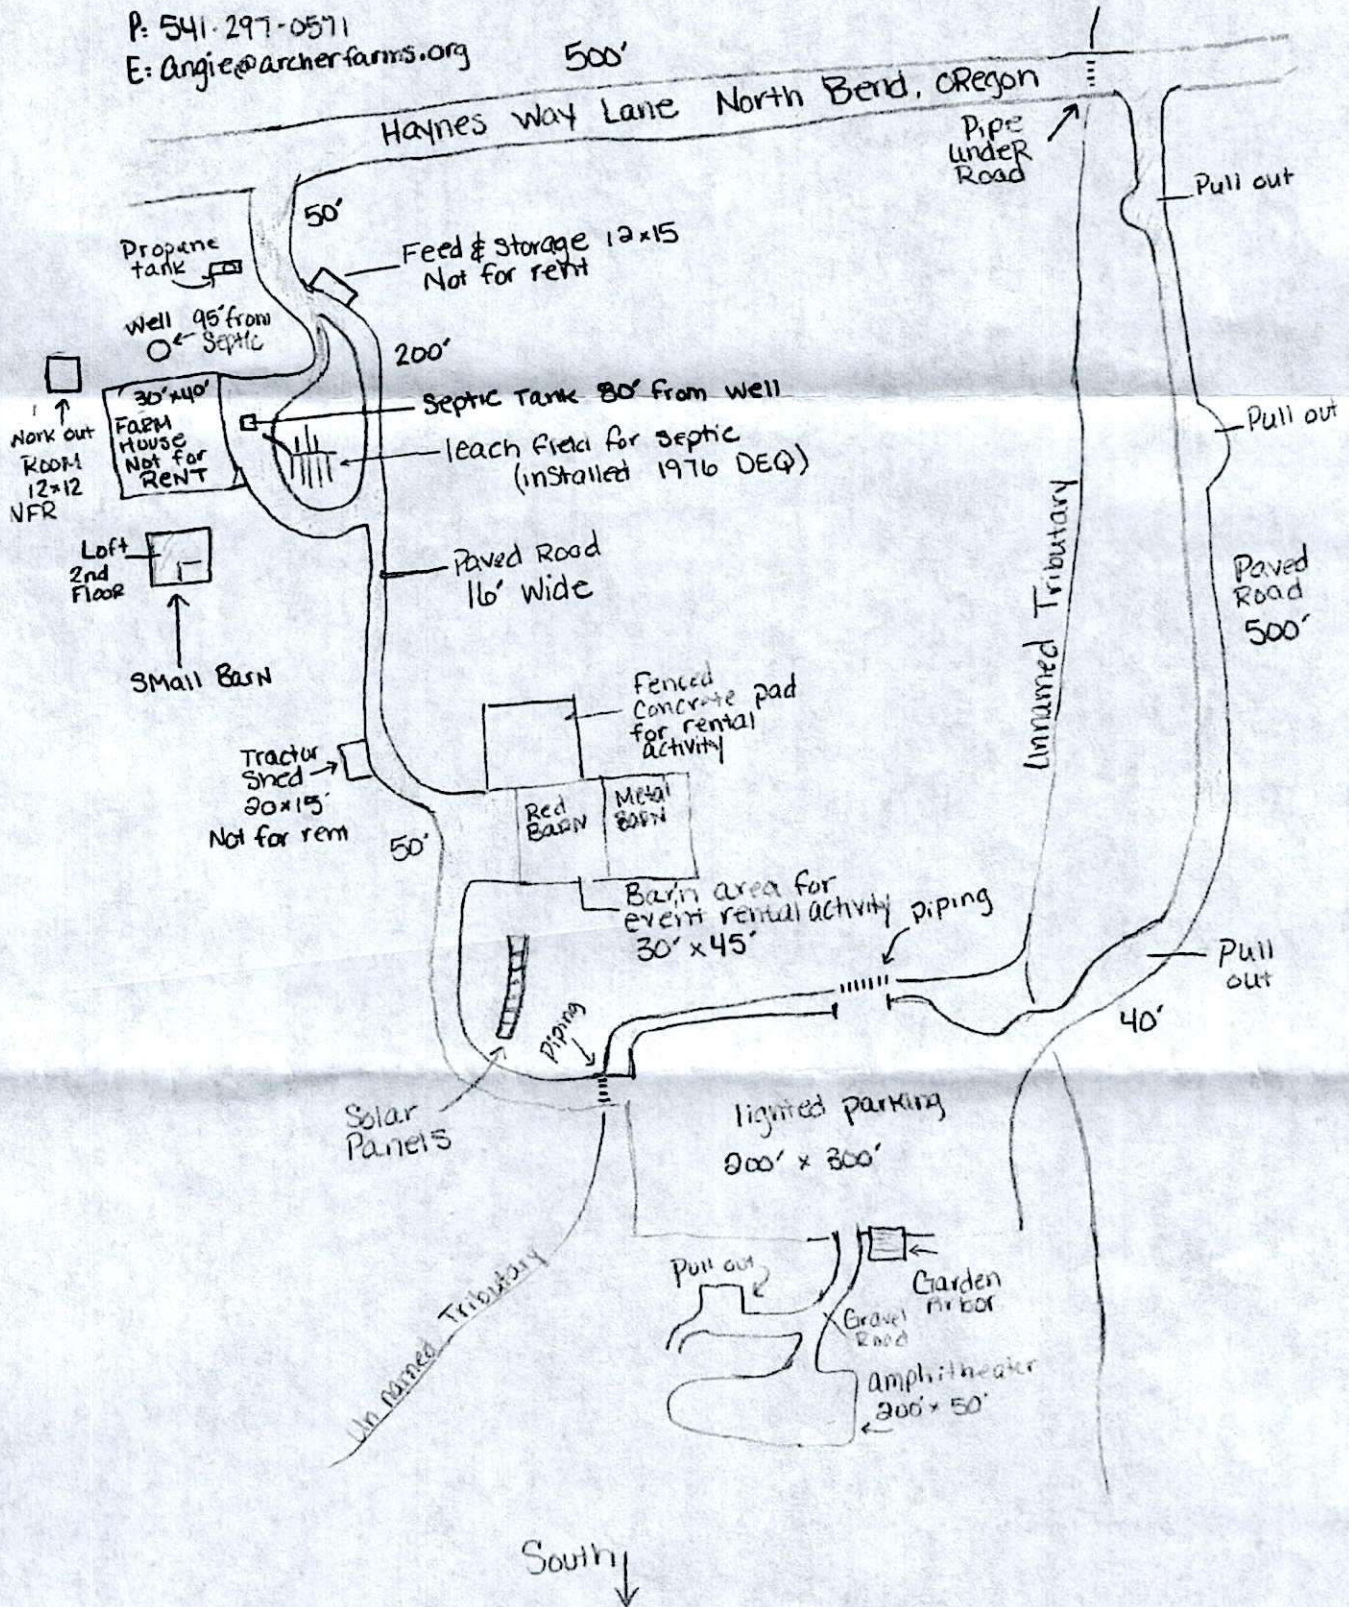 P: 541-297-0571
E: angie@archerfarms.org
500'
Haynes Way Lane North Bend, ORegon
Pipe
undeR
Road
Pull out
50'
Propane
tank
Feed & Storage 12x15
Not for rent
Well 95' from
Septic
200'
Septic Tank 80' from well
leach field for septic
(installed 1976 DEQ)
30'x40'
FARM
House
Not for
RENT
Work out
ROOM
12x12
NFR
Pull out
Loft
2nd
Floor
Small Barn
Paved Road
16' Wide
Unnamed Tributary
Paved
Road
500'
Fenced
Concrete pad
for rental
activity
Tractor
Shed
20x15'
Not for rent
50'
Red
BARN
Metal
BARN
Barn area for
event rental activity
30' x 45'
piping
Pull
out
40'
piping
Solar
Panels
lighted parking
200' x 300'
Unnamed Tributary
Pull out
Garden
Arbor
Gravel
Road
amphitheater
200' x 50'
South